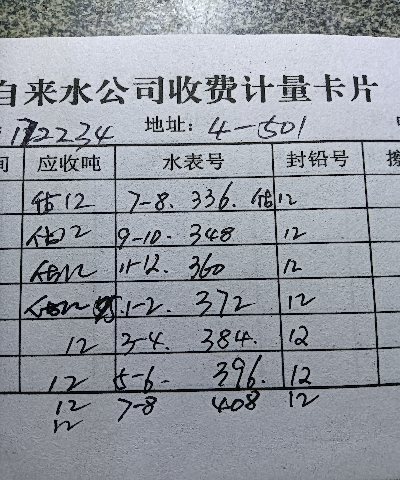 自来水公司收费计量卡片
172234 地址: 4-501
间 应收吨 水表号 封铅号 擦
估12 7-8. 336. 估12
估12 9-10. 348 12
估12 11-12. 360 12
估12 1-2. 372 12
12 3-4. 384. 12
12 5-6. 396. 12
12 7-8 408 12
12